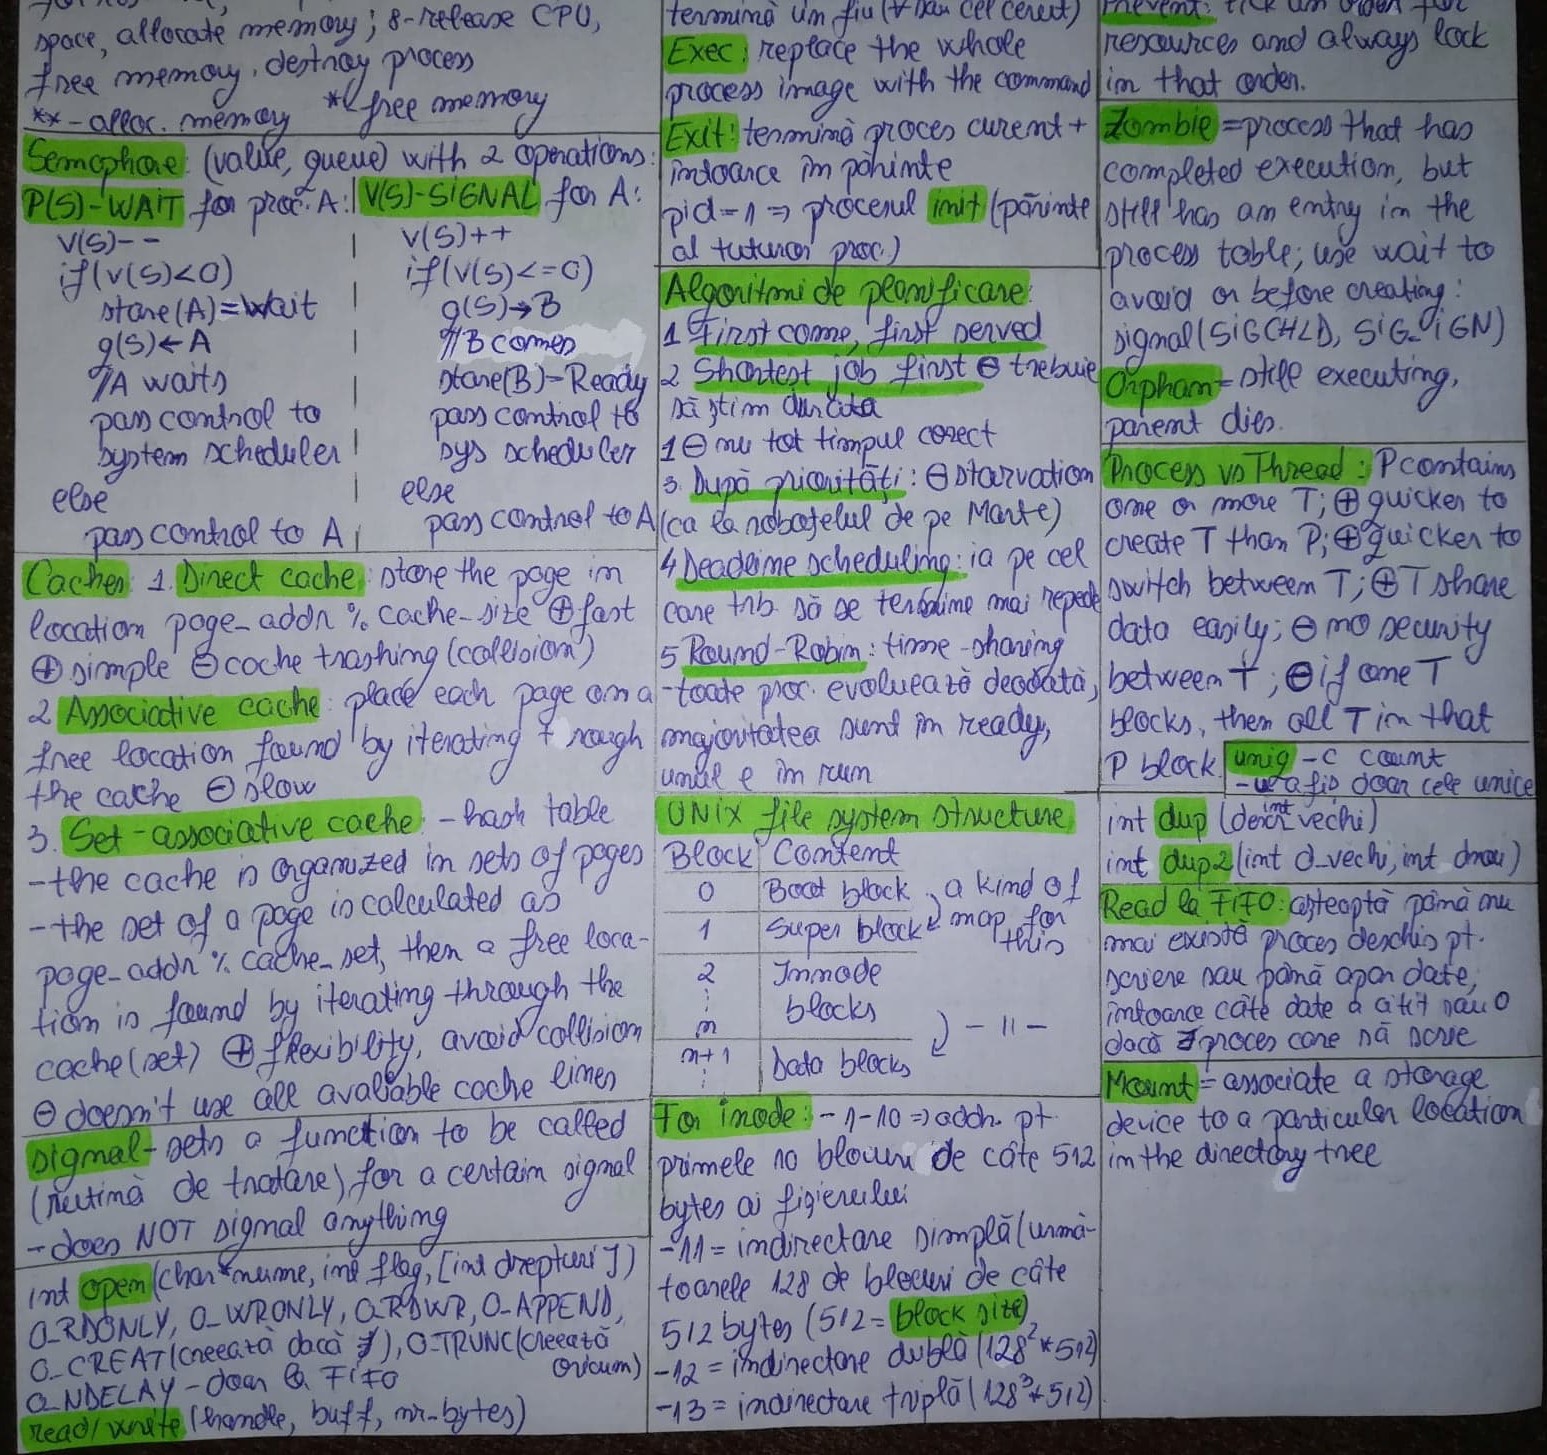 space, allocate memory; 8-release CPU,
free memory, destroy process
** - alloc. memory *- free memory
Semaphore: (value, queue) with 2 operations:
P(S)-WAIT for proc. A: | V(S)-SIGNAL for A:
v(S)-- | v(S)++
if(v(S)<0) | if(v(S)<=0)
stare(A)=Wait | q(S)→B
q(S)←A | //B comes
//A waits | stare(B)=Ready
pass control to | pass control to
system scheduler | sys scheduler
else | else
pass control to A | pass control to A
Caches: 1. Direct cache: store the page in
location page_addr % cache_size ⊕fast
⊕simple ⊖cache trashing (collision)
2 Associative cache: place each page on a
free location found by iterating through
the cache ⊖slow
3. Set-associative cache: - hash table
-the cache is organized in sets of pages
-the set of a page is calculated as
page_addr % cache_set, then a free loca-
tion is found by iterating through the
cache(set) ⊕flexibility, avoid collision
⊖doesn't use all avaliable cache lines
signal- sets a function to be called
(rutină de tratare) for a certain signal
-does NOT signal anything
int open(char*nume, int flag, [int drepturi])
O_RDONLY, O_WRONLY, O_RDWR, O_APPEND,
O_CREAT(creează dacă ∄), O_TRUNC(creează
oricum)
O_NDELAY - doar la FIFO
read/write (handle, buff, nr-bytes)
termină un fiu (∀ sau cel cerut)
Exec: replace the whole
process image with the command
Exit: termină proces curent +
întoarce în părinte
pid=1 => procesul init (părinte
al tuturor proc.)
Algoritmi de planificare:
1 First come, first served
2 Shortest job first ⊖ trebuie
să știm durata
1 ⊖ nu tot timpul corect
3. După priorități: ⊖starvation
(ca la roboțelul de pe Marte)
4 Deadline scheduling: ia pe cel
care trb. să se termine mai repede
5 Round-Robin: time-sharing
-toate proc. evoluează deodată,
majoritatea sunt în ready,
unul e în run
UNIX file system structure
Block | Content
0 | Boot block, a kind of
1 | Super block map for
this
2 | Innode
⋮ | blocks
n | - 11 -
n+1 | Data blocks
⋮
For inode: - 1-10 => addr. pt
primele 10 blocuri de câte 512
bytes ai fișierului
-11 = indirectare simplă (urmă-
toarele 128 de blocuri de câte
512 bytes (512= block size)
-12 = indirectare dublă (128²*512)
-13 = indirectare triplă (128³*512)
Prevent: pick an order for
resources and always lock
in that order.
Zombie = process that has
completed execution, but
still has an entry in the
process table; use wait to
avoid or before creating:
signal(SIGCHLD, SIG_IGN)
Orphan = still executing,
parent dies.
Process vs Thread: P contains
one or more T; ⊕quicker to
create T than P; ⊕quicker to
switch between T; ⊕T share
data easily; ⊖no security
between T; ⊖if one T
blocks, then all T in that
P block.
uniq -c count
-u afiș doar cele unice
int dup (int descr vechi)
int dup2(int d_vechi, int dnou)
Read la FIFO: așteaptă până nu
mai există proces deschis pt.
scriere sau până apar date,
întoarce câte date a citit sau 0
dacă ∄ proces care să scrie
Mount = associate a storage
device to a particular location
in the directory tree